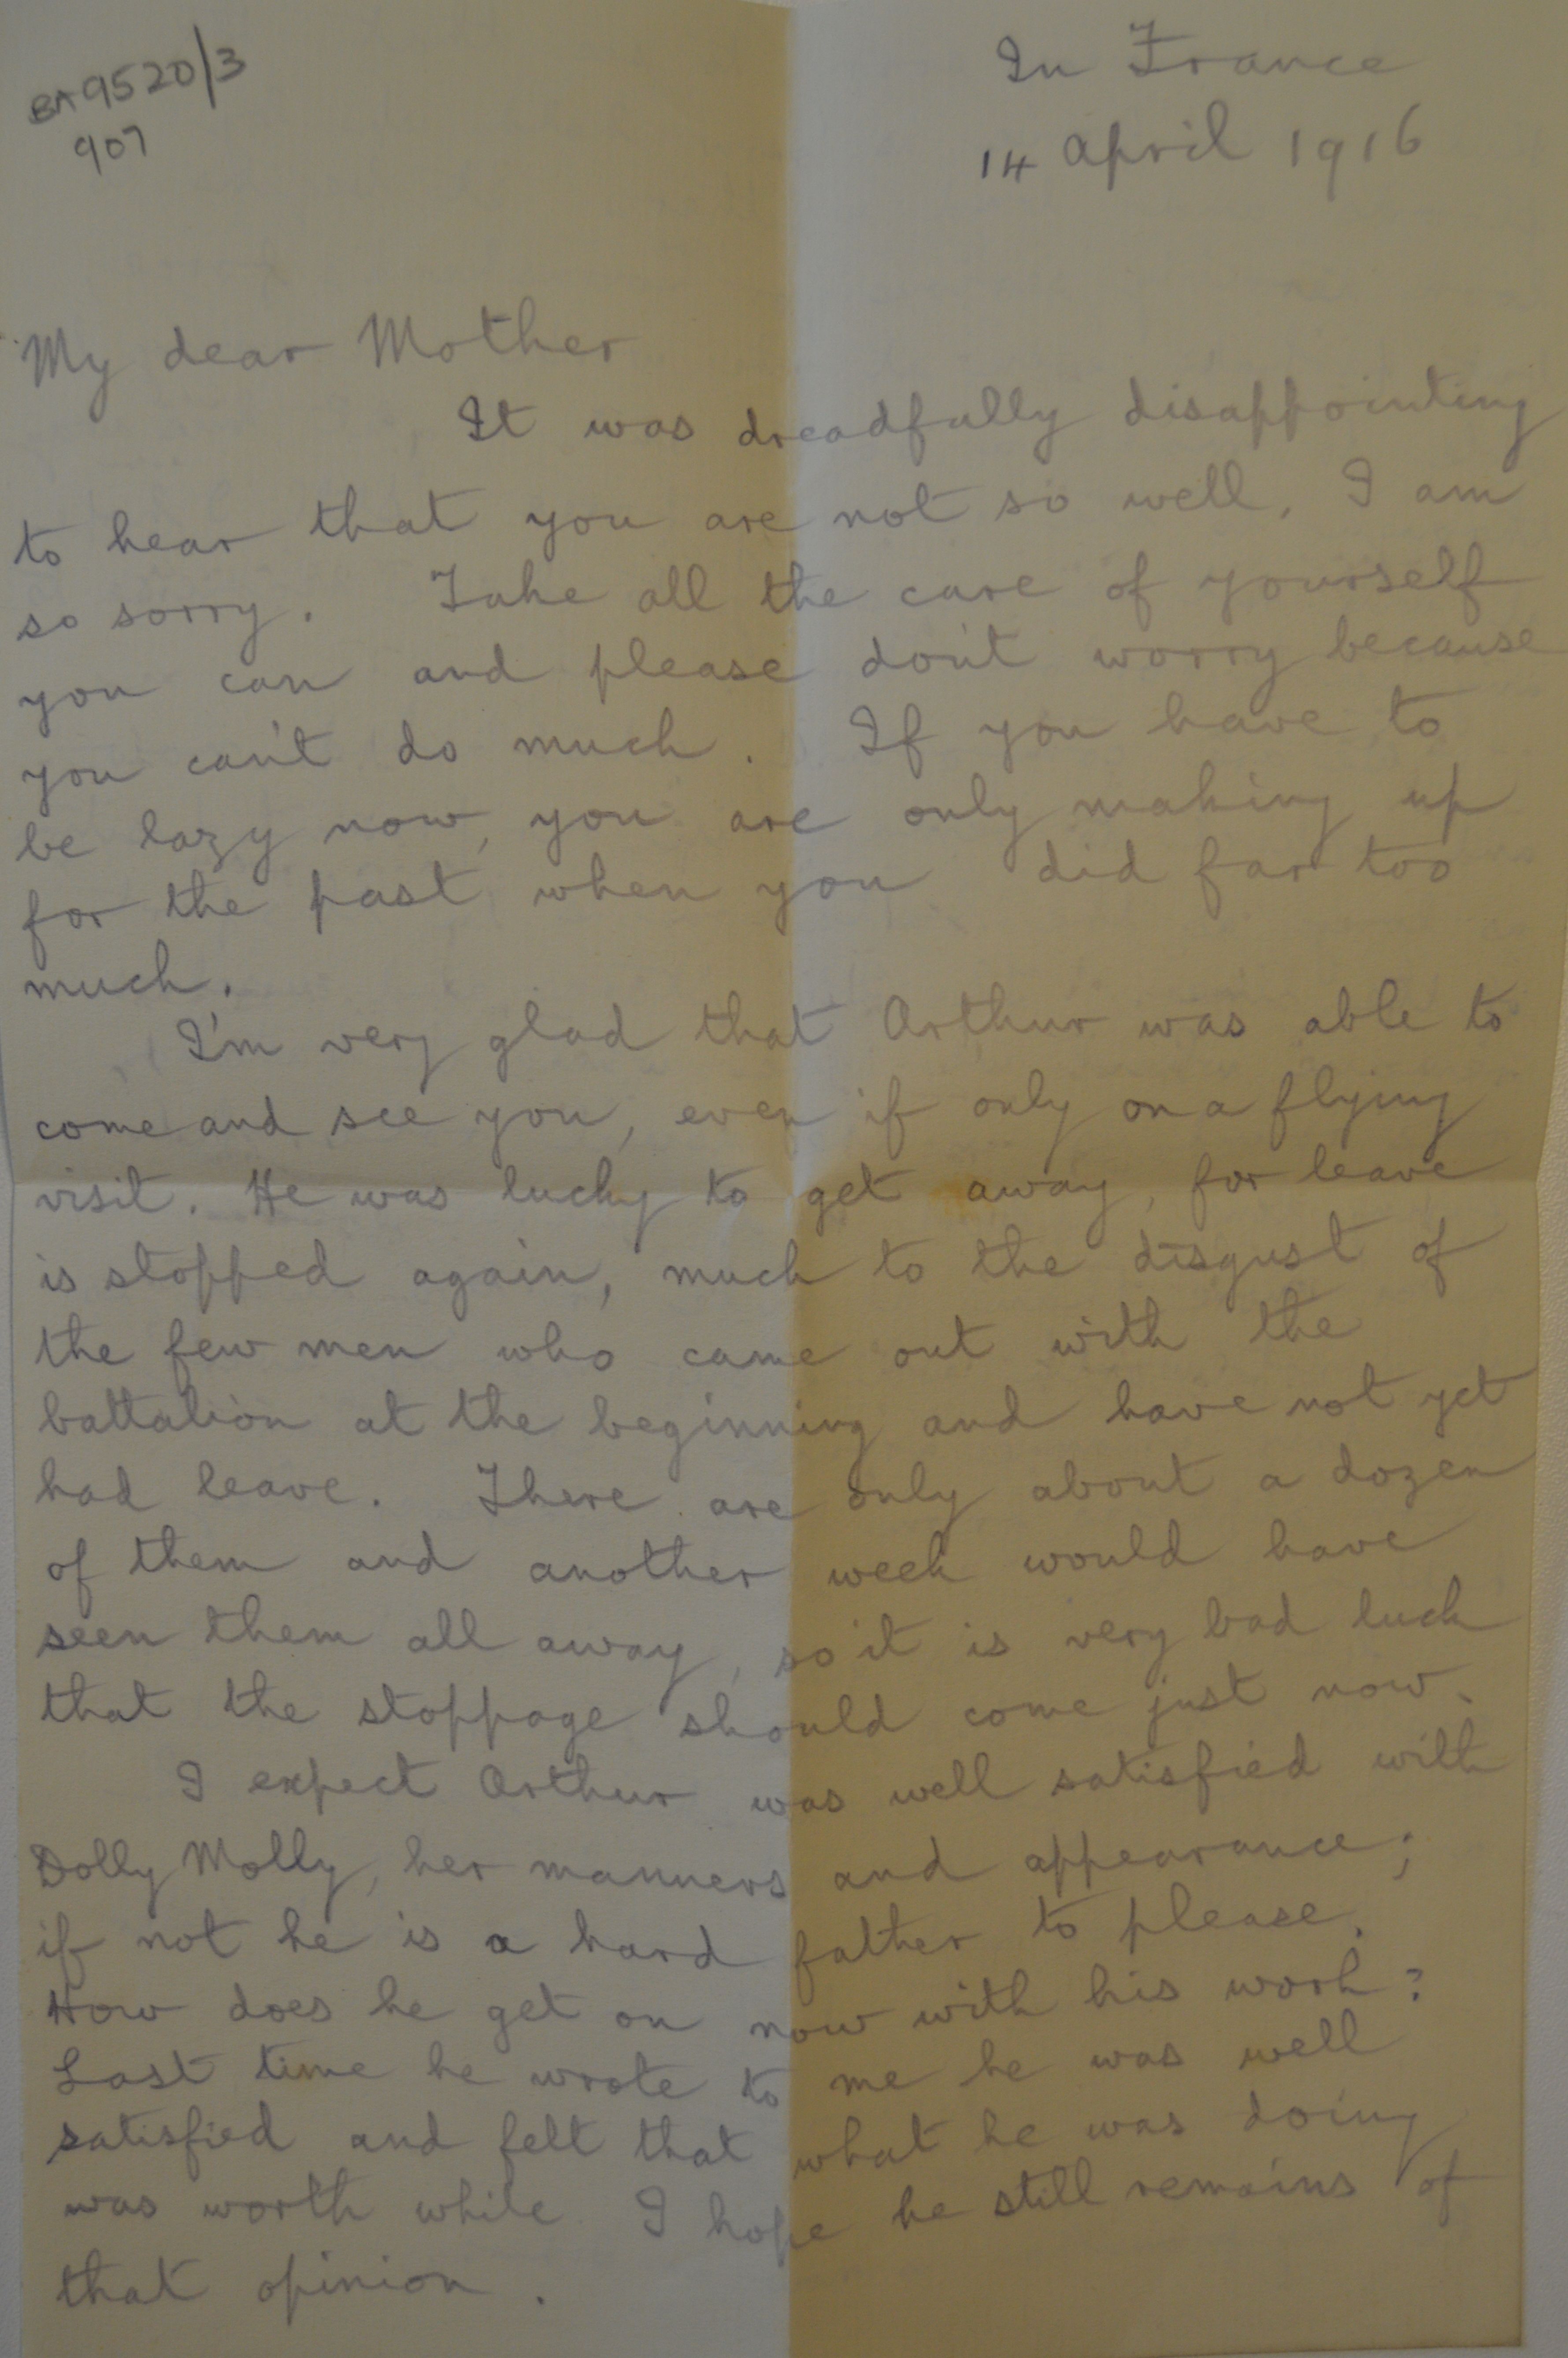 BA9520/3
907
In France
14 April 1916
My dear Mother
It was dreadfully disappointing
to hear that you are not so well, I am
so sorry. Take all the care of yourself
you can and please don't worry because
you can't do much. If you have to
be lazy now, you are only making up
for the past when you did far too
much.
I'm very glad that Arthur was able to
come and see you, even if only on a flying
visit. He was lucky to get away, for leave
is stopped again, much to the disgust of
the few men who came out with the
battalion at the beginning and have not yet
had leave. There are only about a dozen
of them and another week would have
seen them all away, so it is very bad luck
that the stoppage should come just now.
I expect Arthur was well satisfied with
Dolly Molly, her manners and appearance;
if not he is a hard father to please.
How does he get on now with his work?
Last time he wrote to me he was well
satisfied and felt that what he was doing
was worth while I hope he still remains of
that opinion.